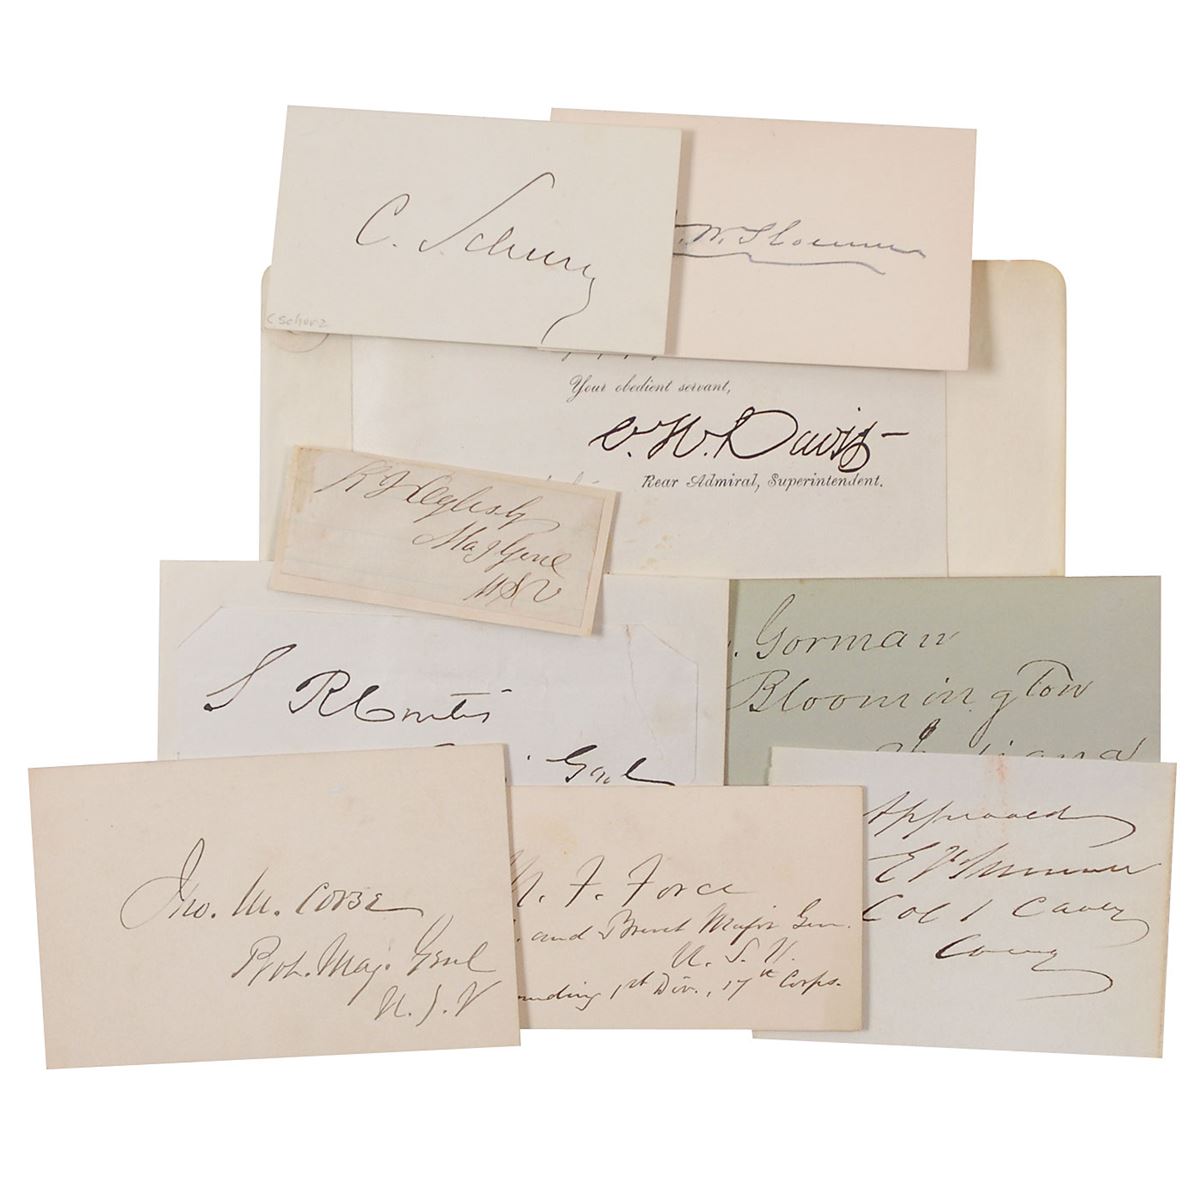 C. Schurz
C Schurz
W. Slocum
Your obedient servant,
C. H. Davis
Rear Admiral, Superintendent.
R J Oglesby
Maj Genl
USV
S R Curtis
Genl
Gorman
Bloomington
Indiana
Jno. M. Corse
Bvt. Maj. Genl
U. S. V
M. F. Force
. and Brevet Major Gen.
U. S. V.
1st Div., 17th Corps.
Approved
E V Sumner
Col 1 Cavy
Comg